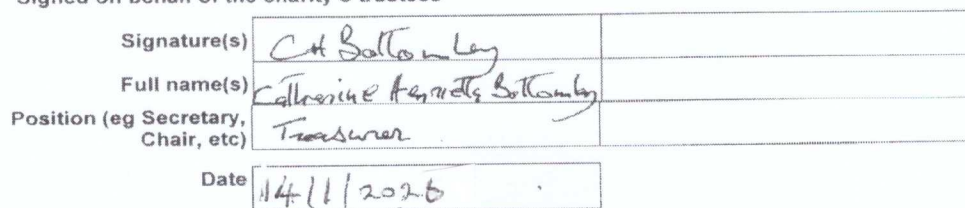 Signed on behalf of the charity's trustees
Signature(s) CH Bottomley
Full name(s) Catherine Henrietta Bottomley
Position (eg Secretary,
Chair, etc) Treasurer
Date 14/1/2026